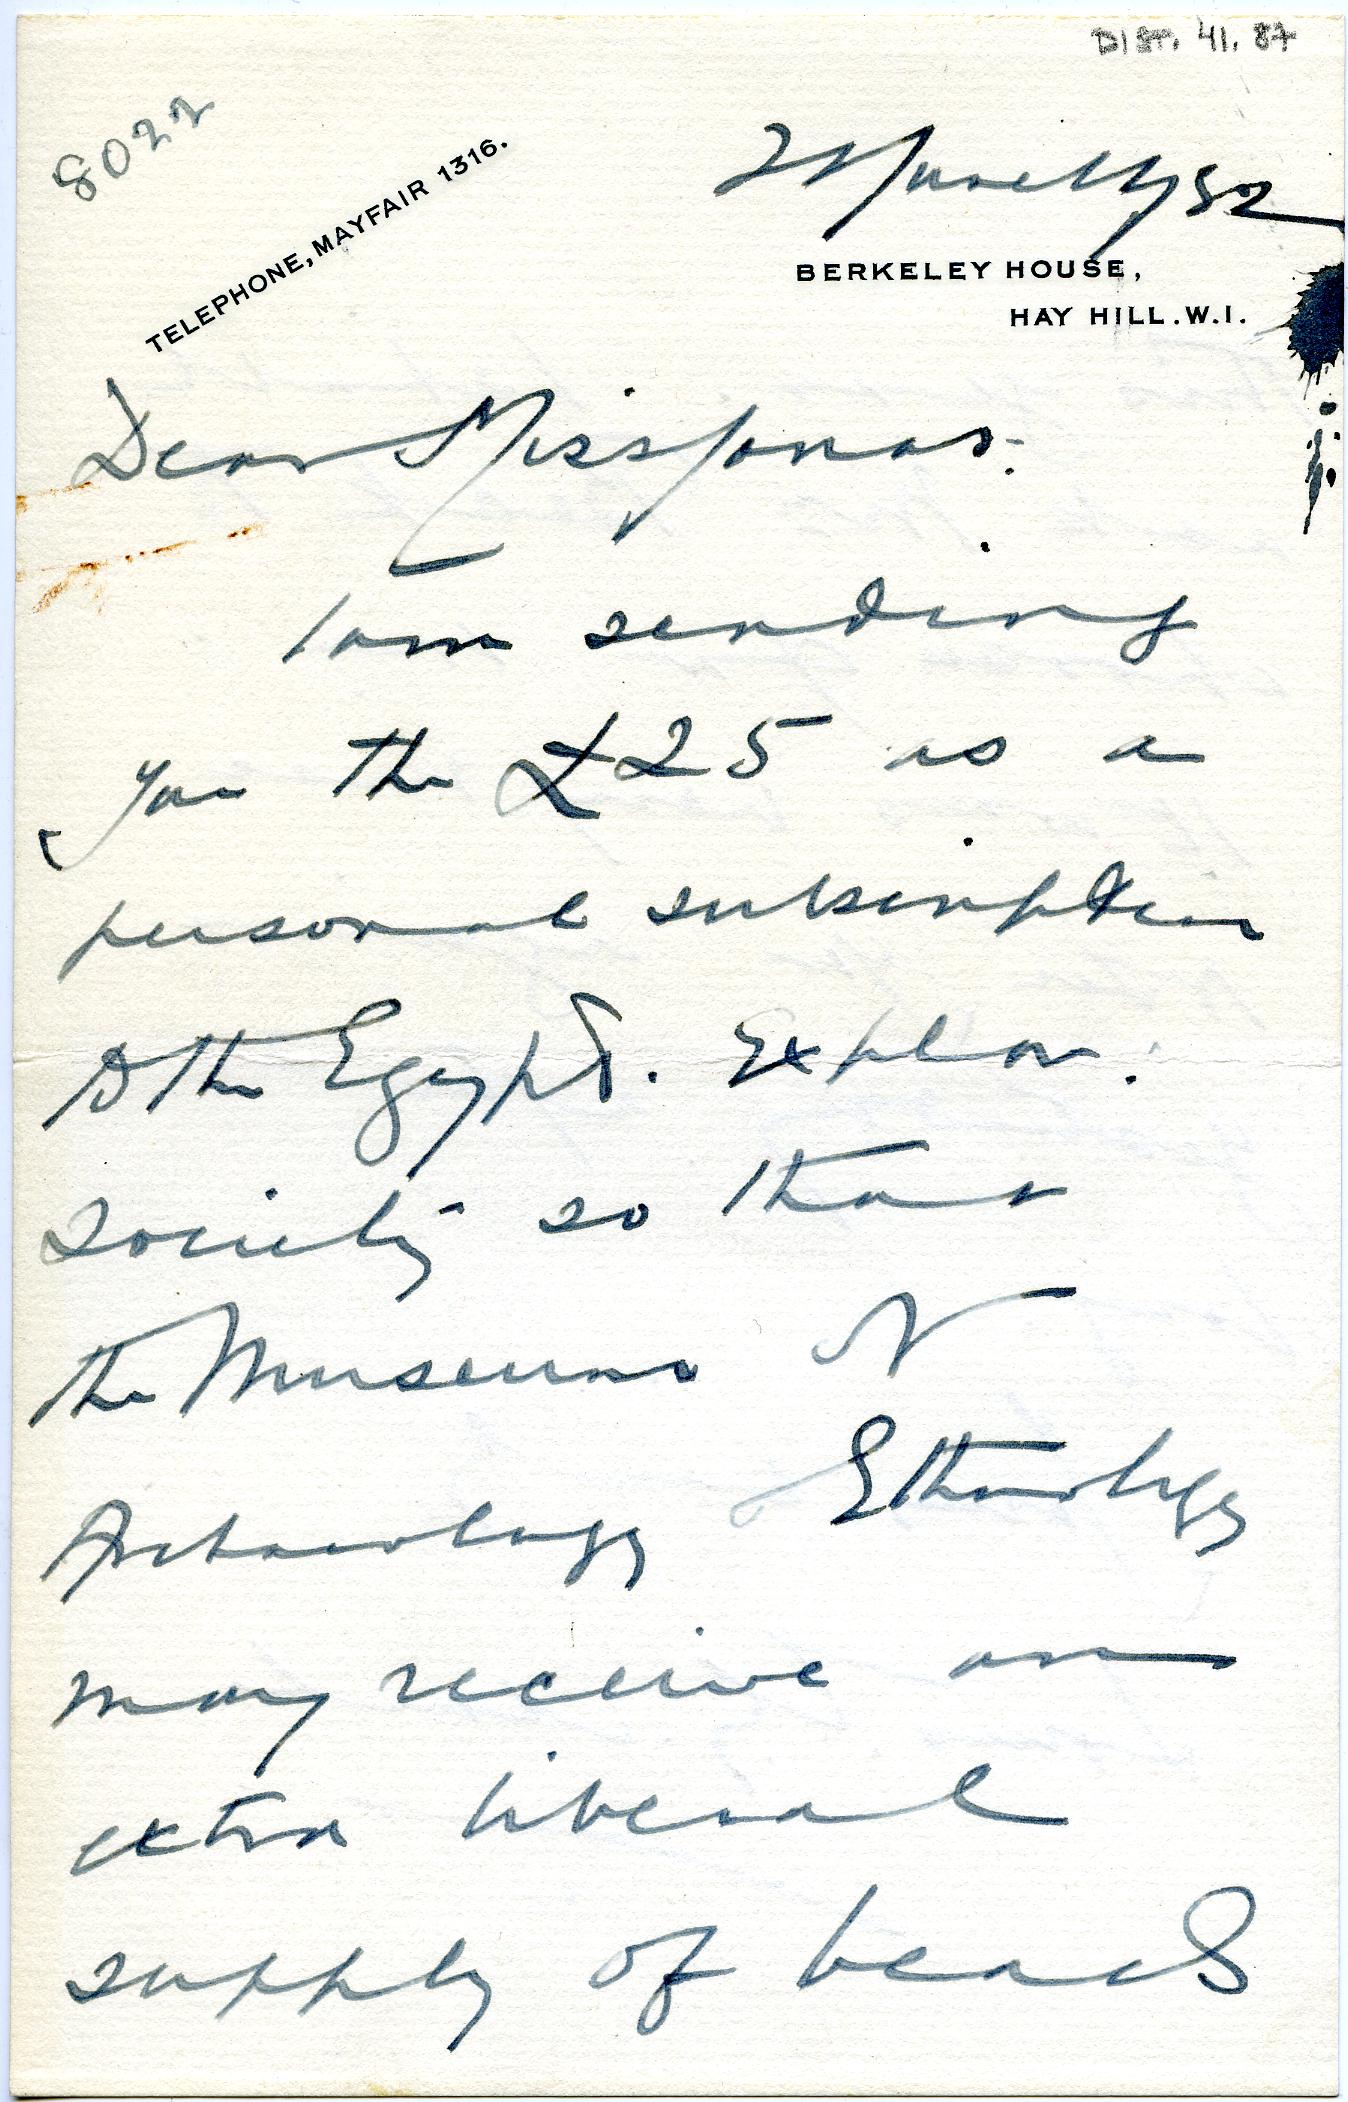 DIST. 41. 87
8022
TELEPHONE, MAYFAIR 1316.
2 March 32
BERKELEY HOUSE,
HAY HILL. W.1.
Dear Miss Jonas:
I am sending
you the £25 as a
personal subscription
to the Egypt. Explor.
Society so that
the Museum of
Archaeology & Ethnology
may receive an
extra liberal
supply of beads